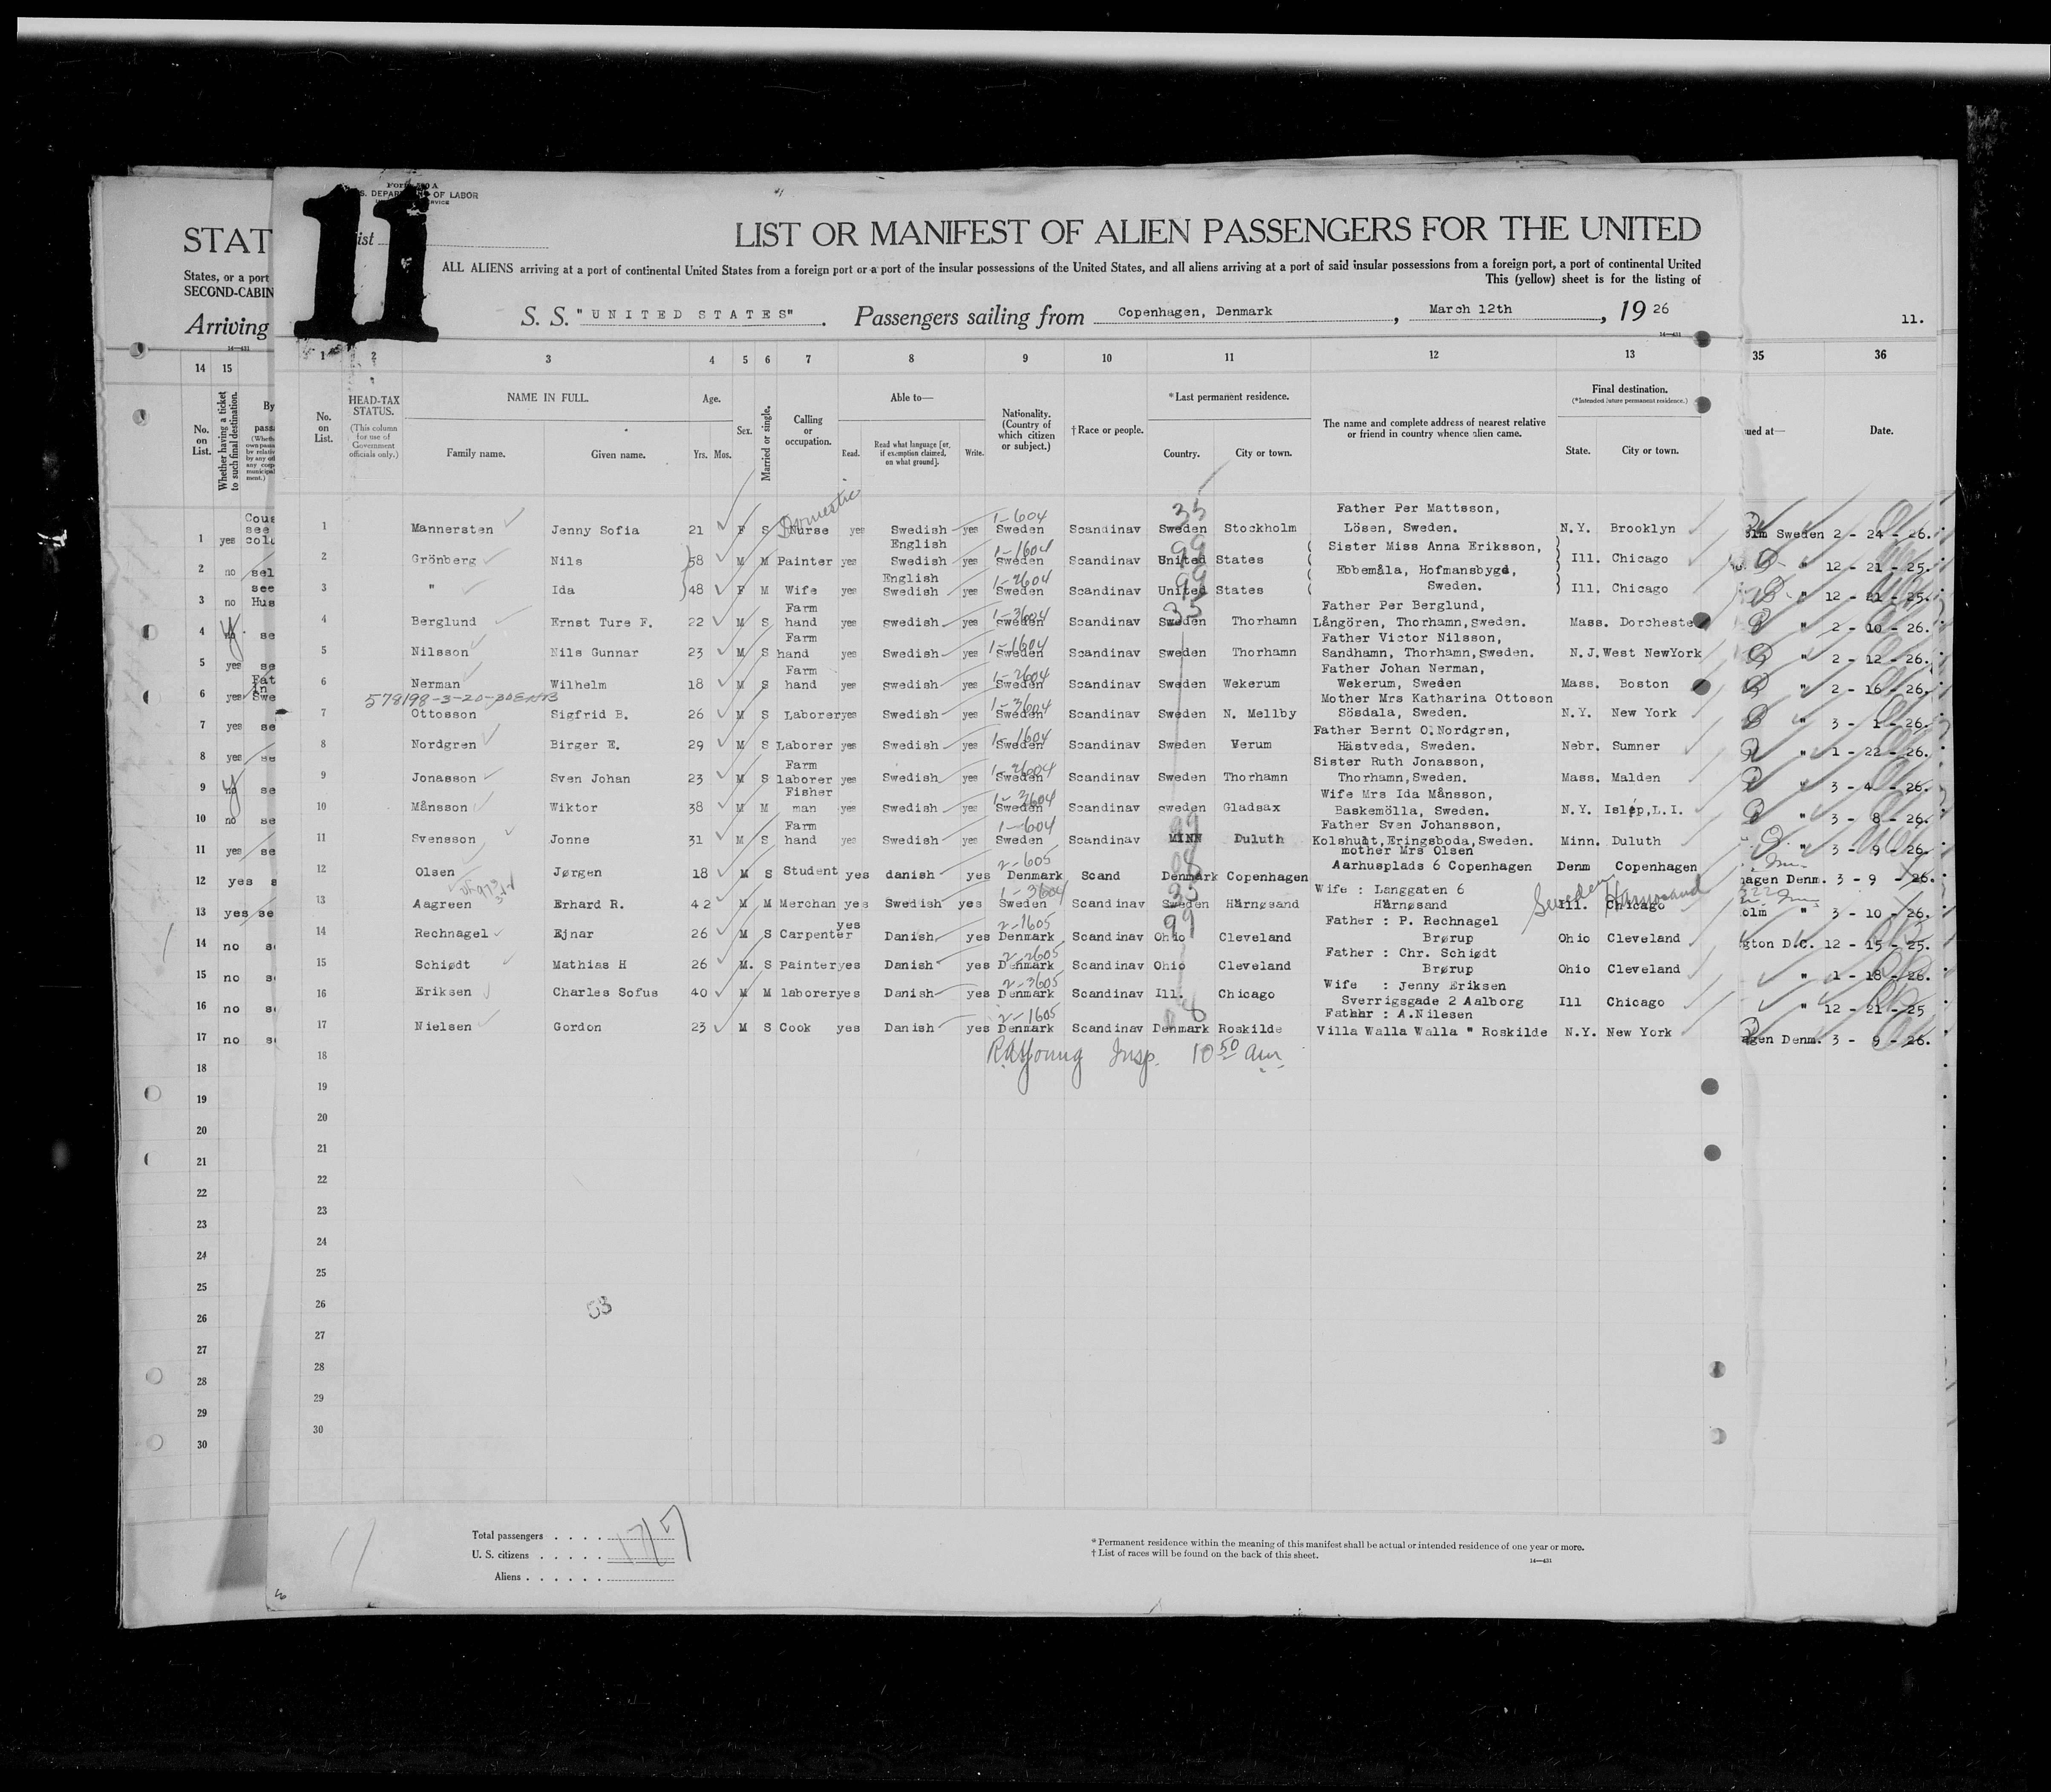 Form 500 A
U.S. DEPARTMENT OF LABOR
11
List
STAT
LIST OR MANIFEST OF ALIEN PASSENGERS FOR THE UNITED
States, or a port
SECOND-CABIN
ALL ALIENS arriving at a port of continental United States from a foreign port or a port of the insular possessions of the United States, and all aliens arriving at a port of said insular possessions from a foreign port, a port of continental United
This (yellow) sheet is for the listing of
Arriving
S. S. "UNITED STATES". Passengers sailing from Copenhagen, Denmark, March 12th, 1926
11.
14—431
14 15 1 2 3 4 5 6 7 8 9 10 11 12 13 35 36
No. on List.
Whether having a ticket to such final destination.
No. on List.
HEAD-TAX STATUS.
(This column for use of Government officials only.)
NAME IN FULL.
Family name. Given name.
Age.
Yrs. Mos.
Sex.
Married or single.
Calling or occupation.
Able to—
Read. Read what language [or, if exemption claimed, on what ground]. Write.
Nationality. (Country of which citizen or subject.)
†Race or people.
*Last permanent residence.
Country. City or town.
The name and complete address of nearest relative or friend in country whence alien came.
Final destination.
(*Intended future permanent residence.)
State. City or town.
ued at— Date.
1 Mannersten Jenny Sofia 21 F S Domestic Nurse yes Swedish yes 1-604 Sweden Scandinav 35 Sweden Stockholm Father Per Mattsson, Lösen, Sweden. N.Y. Brooklyn Sweden 2 - 24 - 26.
2 Grönberg Nils 58 M M Painter yes English Swedish yes 1-1604 Sweden Scandinav 99 United States Sister Miss Anna Eriksson, Ill. Chicago " 12 - 21 - 25.
3 " Ida 48 F M Wife yes English Swedish yes 1-2604 Sweden Scandinav 99 United States Ebbemåla, Hofmansbygd, Sweden. Ill. Chicago 12 - 21 - 25.
4 Berglund Ernst Ture F. 22 M S Farm hand yes swedish yes 1-3604 sweden Scandinav 35 Sweden Thorhamn Father Per Berglund, Långören, Thorhamn, Sweden. Mass. Dorcheste " 2 - 10 - 26.
5 Nilsson Nils Gunnar 23 M S Farm hand yes Swedish yes 1-1604 Sweden Scandinav Sweden Thorhamn Father Victor Nilsson, Sandhamn, Thorhamn, Sweden. N.J. West NewYork " 2 - 12 - 26.
6 Nerman Wilhelm 18 M S Farm hand yes swedish yes 1-2604 Sweden Scandinav Sweden Wekerum Father Johan Nerman, Wekerum, Sweden Mass. Boston " 2 - 16 - 26.
7 Ottosson Sigfrid B. 26 M S Laborer yes Swedish yes 1-3604 Sweden Scandinav Sweden N. Mellby Mother Mrs Katharina Ottoson Sösdala, Sweden. N.Y. New York " 3 - 1 - 26.
8 Nordgren Birger E. 29 M S Laborer yes Swedish yes 1-1604 Sweden Scandinav Sweden Verum Father Bernt O.Nordgren, Hästveda, Sweden. Nebr. Sumner " 1 - 22 - 26.
9 Jonasson Sven Johan 23 M S Farm laborer yes Swedish yes 1-2604 Sweden Scandinav Sweden Thorhamn Sister Ruth Jonasson, Thorhamn, Sweden. Mass. Malden 3 - 4 - 26.
10 Månsson Wiktor 38 M M Fisher man yes Swedish yes 1-3604 Sweden Scandinav sweden Gladsax Wife Mrs Ida Månsson, Baskemölla, Sweden. N.Y. Islip, L.I. " 3 - 8 - 26.
11 Svensson Jonne 31 M S Farm hand yes Swedish yes 1-604 Sweden Scandinav 99 MINN Duluth Father Sven Johansson, Kolshult, Eringsboda, Sweden. Minn. Duluth " 3 - 9 - 26.
12 Olsen Jørgen 18 M S Student yes danish yes 2-605 Denmark Scand Denmark Copenhagen mother Mrs Olsen Aarhusplads 6 Copenhagen Denm Copenhagen hagen Denm. 3 - 9 - 26.
13 Aagreen Erhard R. 42 M M Merchan yes Swedish yes 1-3604 Sweden Scandinav 35 Sweden Härnøsand Wife : Langgaten 6 Härnøsand Sweden Ill. Chicago Harnosand olm " 3 - 10 - 26.
14 Rechnagel Ejnar 26 M S Carpenter yes Danish yes 2-1605 Denmark Scandinav 99 Ohio Cleveland Father : P. Rechnagel Brørup Ohio Cleveland gton D.C. 12 - 15 - 25.
15 Schiødt Mathias H 26 M. S Painter yes Danish yes 2-2605 Denmark Scandinav Ohio Cleveland Father : Chr. Schiødt Brørup Ohio Cleveland " 1 - 18 - 26.
16 Eriksen Charles Sofus 40 M M laborer yes Danish yes 2-3605 Denmark Scandinav Ill. Chicago Wife : Jenny Eriksen Sverrigsgade 2 Aalborg Ill Chicago " 12 - 21 - 25
17 Nielsen Gordon 23 M S Cook yes Danish yes 2-1605 Denmark Scandinav Denmark Roskilde Father : A.Nilesen Villa Walla Walla " Roskilde N.Y. New York agen Denm. 3 - 9 - 26.
18 Insp. 10 50 am
19
20
21
22
23
24
25
26 53
27
28
29
30
1 yes
2 no sel
3 no Hus
4 no se
5 yes se
6 yes Swe
7 yes se
8 yes se
9 no se
10 no se
11 yes se
12 yes s
13 yes se
14 no se
15 no se
16 no se
17 no se
18
19
20
21
22
23
24
25
26
27
28
29
30
Total passengers . . . . 17
U. S. citizens . . . . .
Aliens . . . . . .
* Permanent residence within the meaning of this manifest shall be actual or intended residence of one year or more.
† List of races will be found on the back of this sheet.
14—431